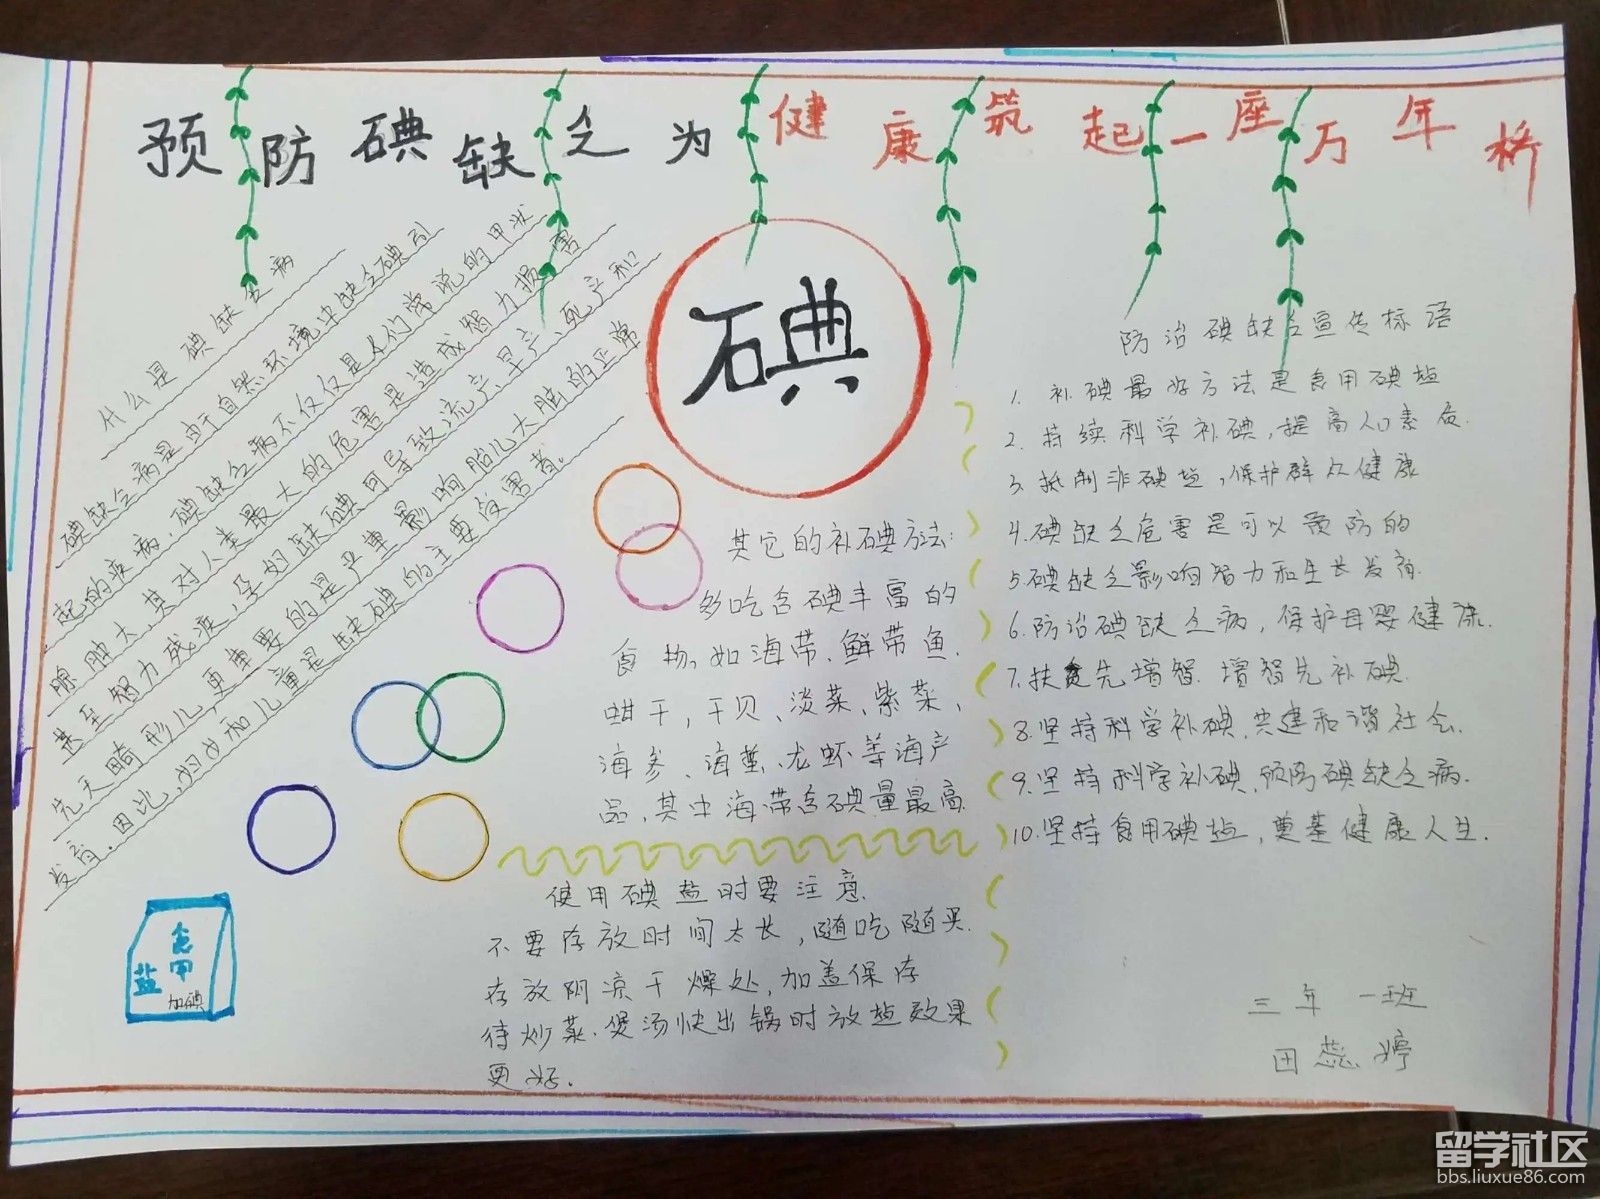 预防碘缺乏为健康筑起一座万年桥
什么是碘缺乏病
碘缺乏病是由于自然环境中缺乏碘引
起的疾病，碘缺乏病不仅仅是人们常说的甲状
腺肿大，其对人类最大的危害是造成智力损害
甚至智力残疾，孕妇缺碘可导致流产、早产、死产和
先天畸形儿，更重要的是严重影响胎儿大脑的正常
发育。因此，妇女和儿童是缺碘的主要受害者。
碘
其它的补碘方法：
多吃含碘丰富的
食物，如海带、鲜带鱼、
蚶干，干贝、淡菜、紫菜、
海参、海蜇、龙虾等海产
品，其中海带含碘量最高
使用碘盐时要注意
不要存放时间太长，随吃随买.
存放阴凉干燥处，加盖保存
待炒菜.煲汤快出锅时放盐效果
更好.
防治碘缺乏宣传标语
1. 补碘最好方法是食用碘盐
2. 持续科学补碘，提高人口素质.
3. 抵制非碘盐，保护群众健康
4.碘缺乏危害是可以预防的
5.碘缺乏影响智力和生长发育.
6.防治碘缺乏病，保护母婴健康.
7.扶贫先增智.增智先补碘.
8.坚持科学补碘,共建和谐社会.
9.坚持科学补碘,预防碘缺乏病.
10.坚持食用碘盐，奠基健康人生.
食用
盐
加碘
三年一班
田蕊婷
留学社区
bbs.liuxue86.com